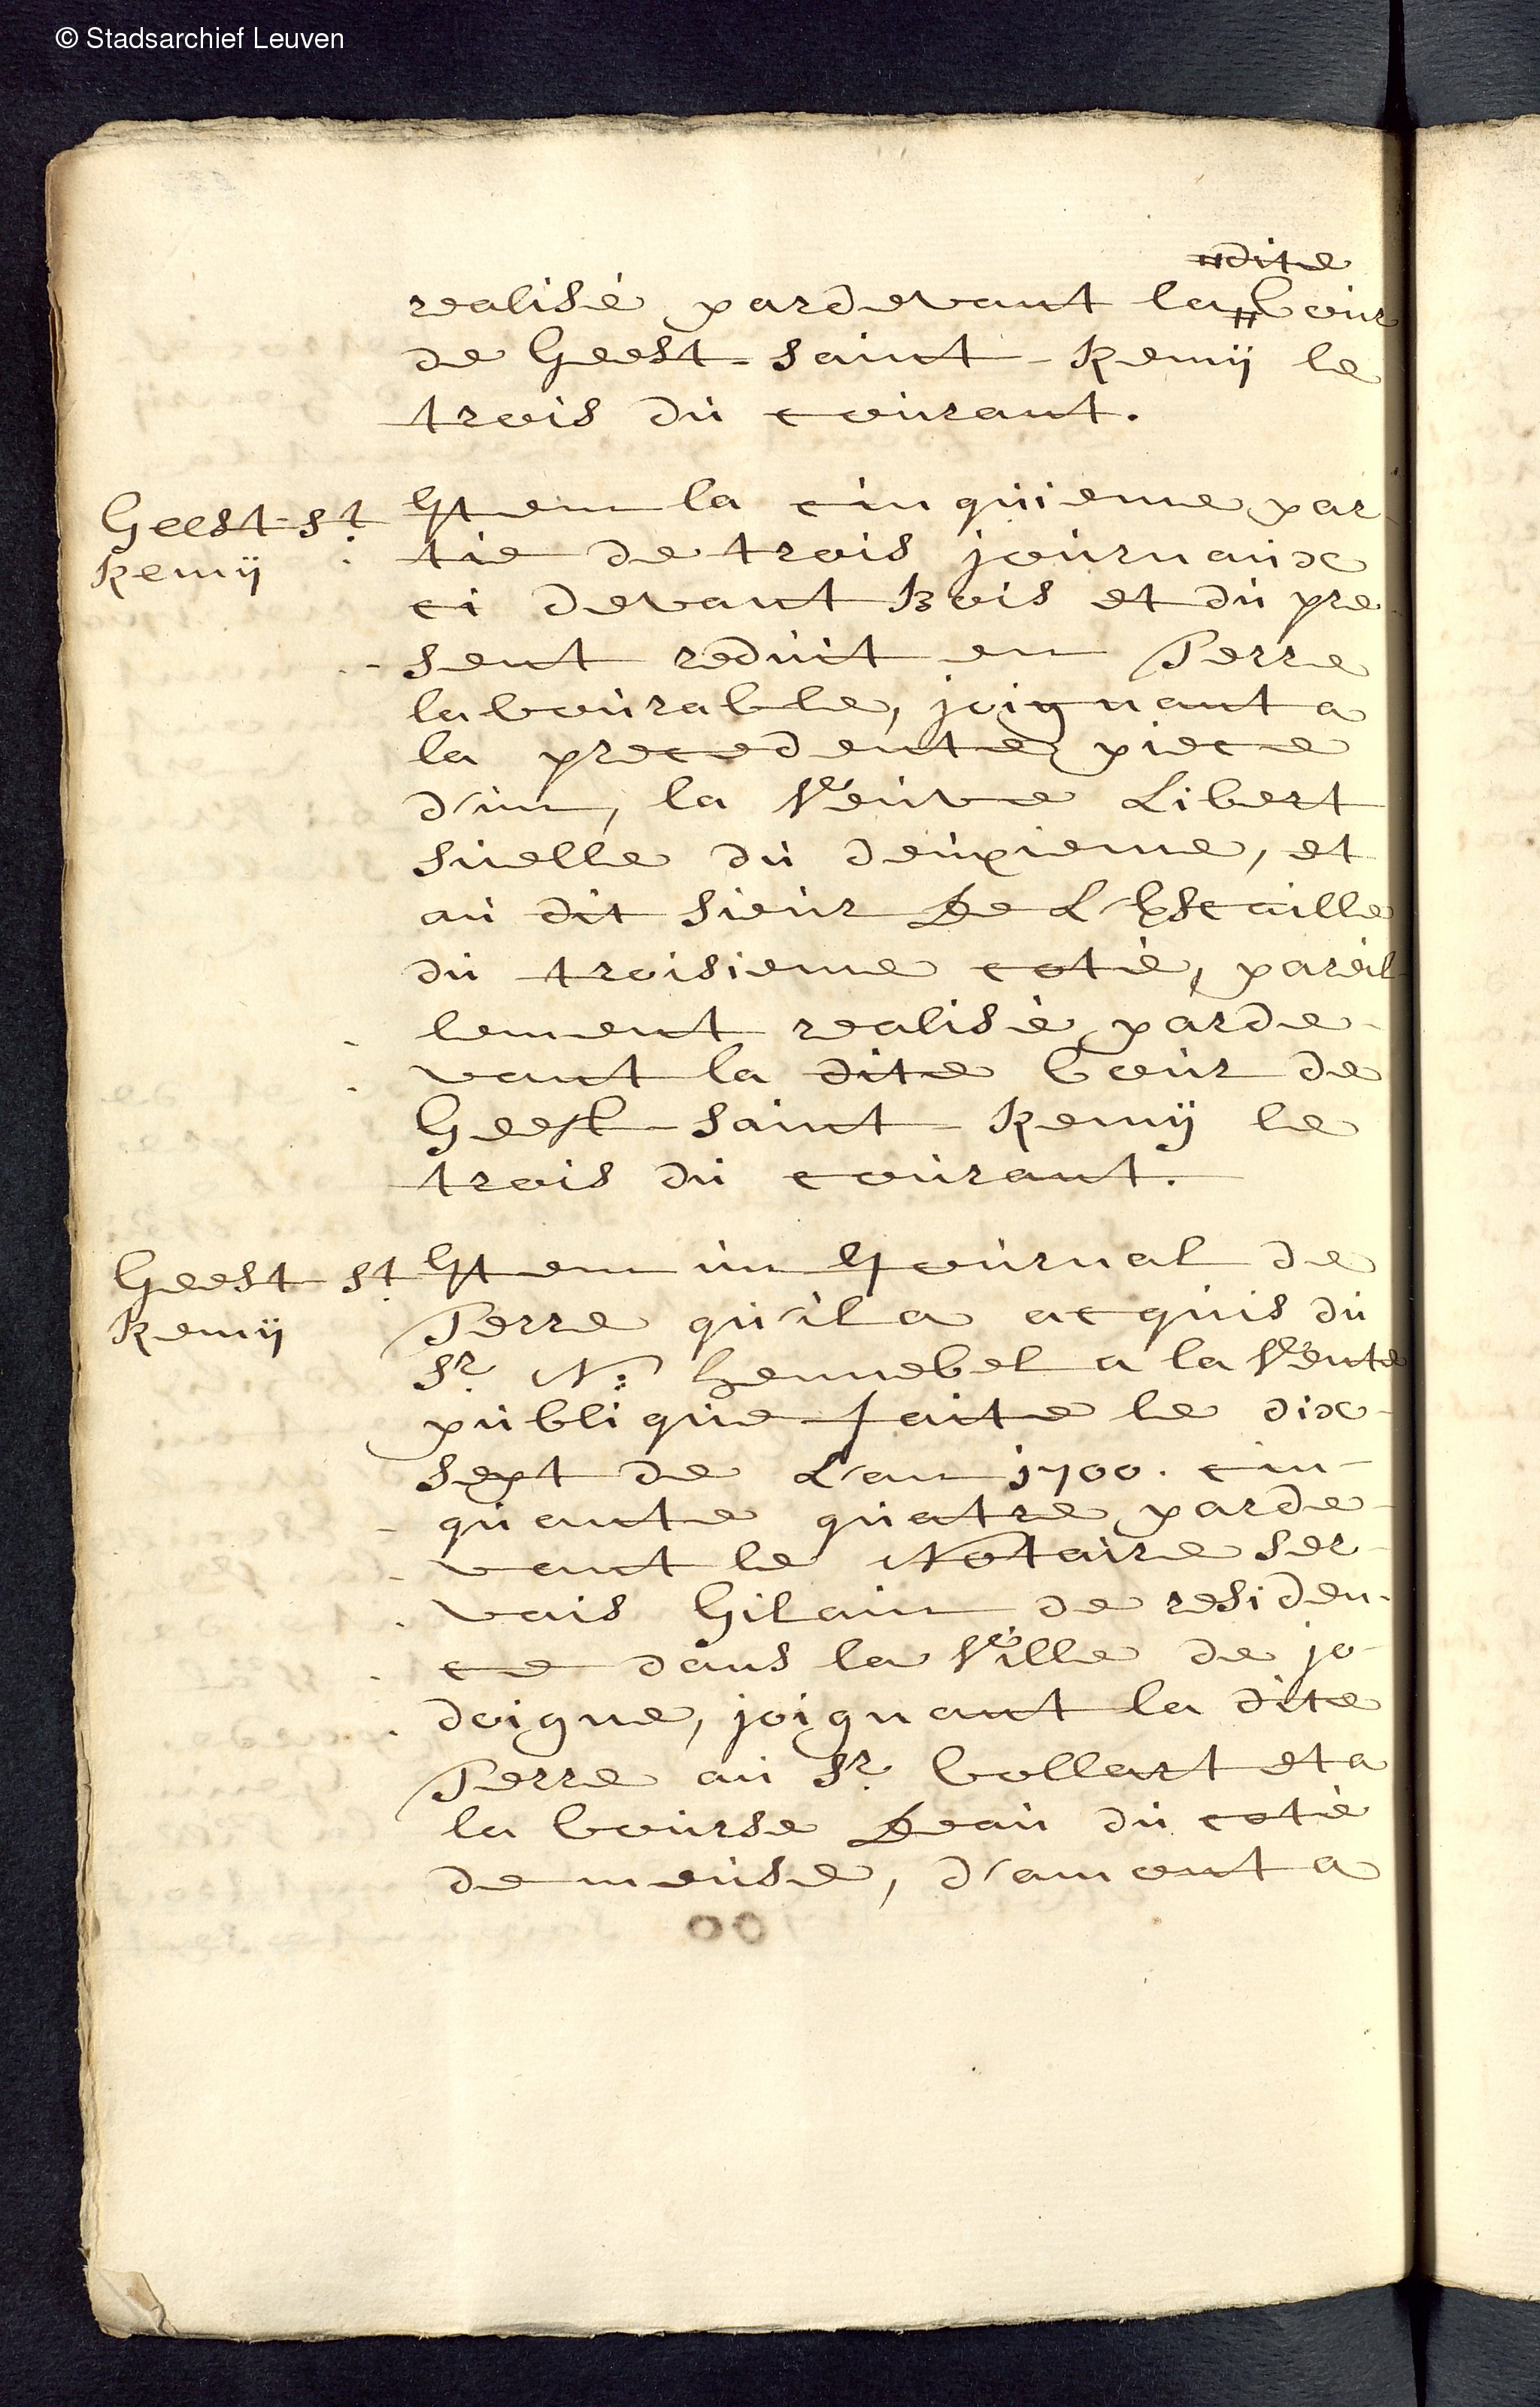 © Stadsarchief Leuven
# dite
realisé pardevant la # Cour
de Geest-Saint-Remÿ le
trois du courant.
Geest-St
Remÿ
Item la cinquieme par-
tie de trois journaux
ci devant Bois et du pre-
sent reduit en Terre
labourable, joignant a
la precedente piece
d'un, la Veuve Libert
Suelle du deuxieme, et
au dit sieur De L'Escaille
du troisieme coté, pareil
lement realisé parde-
vant la dite Cour de
Geest-Saint-Remÿ le
trois du courant.
Geest St
Remÿ
Item un Journal de
Terre qu'il a acquis du
Sr. N: Hennebel a la Vente
publique faite le dix-
sept de L'an 1700. cin-
quante quatre parde-
vant le Notaire Ser-
vais Gilain de residen-
ce dans la Ville de jo-
doigne, joignant la dite
Terre au Sr. Collart et a
la Course Deau du coté
de meuse, d'amont a